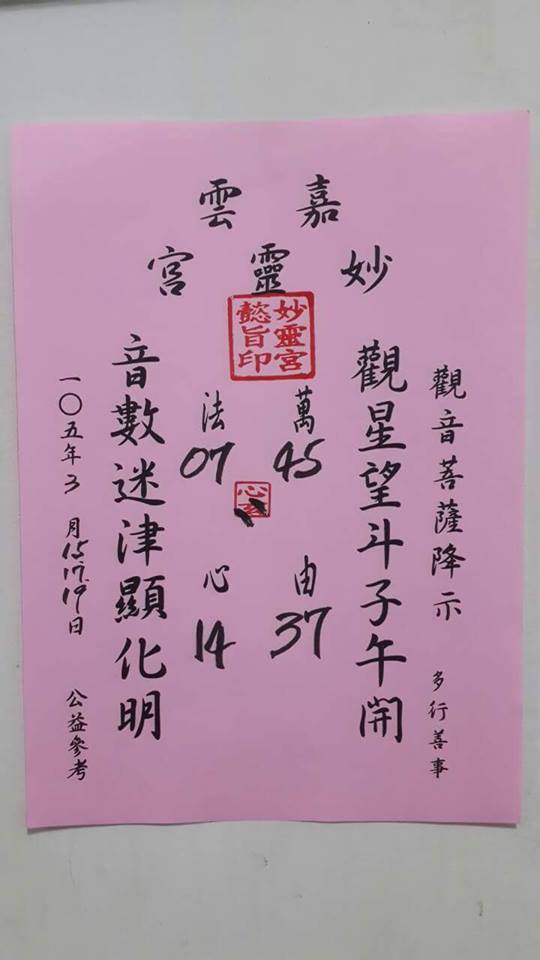 嘉雲
妙靈宮
妙靈宮
懿旨印
觀音菩薩降示 多行善事
觀星望斗子午開
萬 45
法 07
由 37
心 14
音數迷津顯化明
一〇五年3月15.17.19日 公益參考